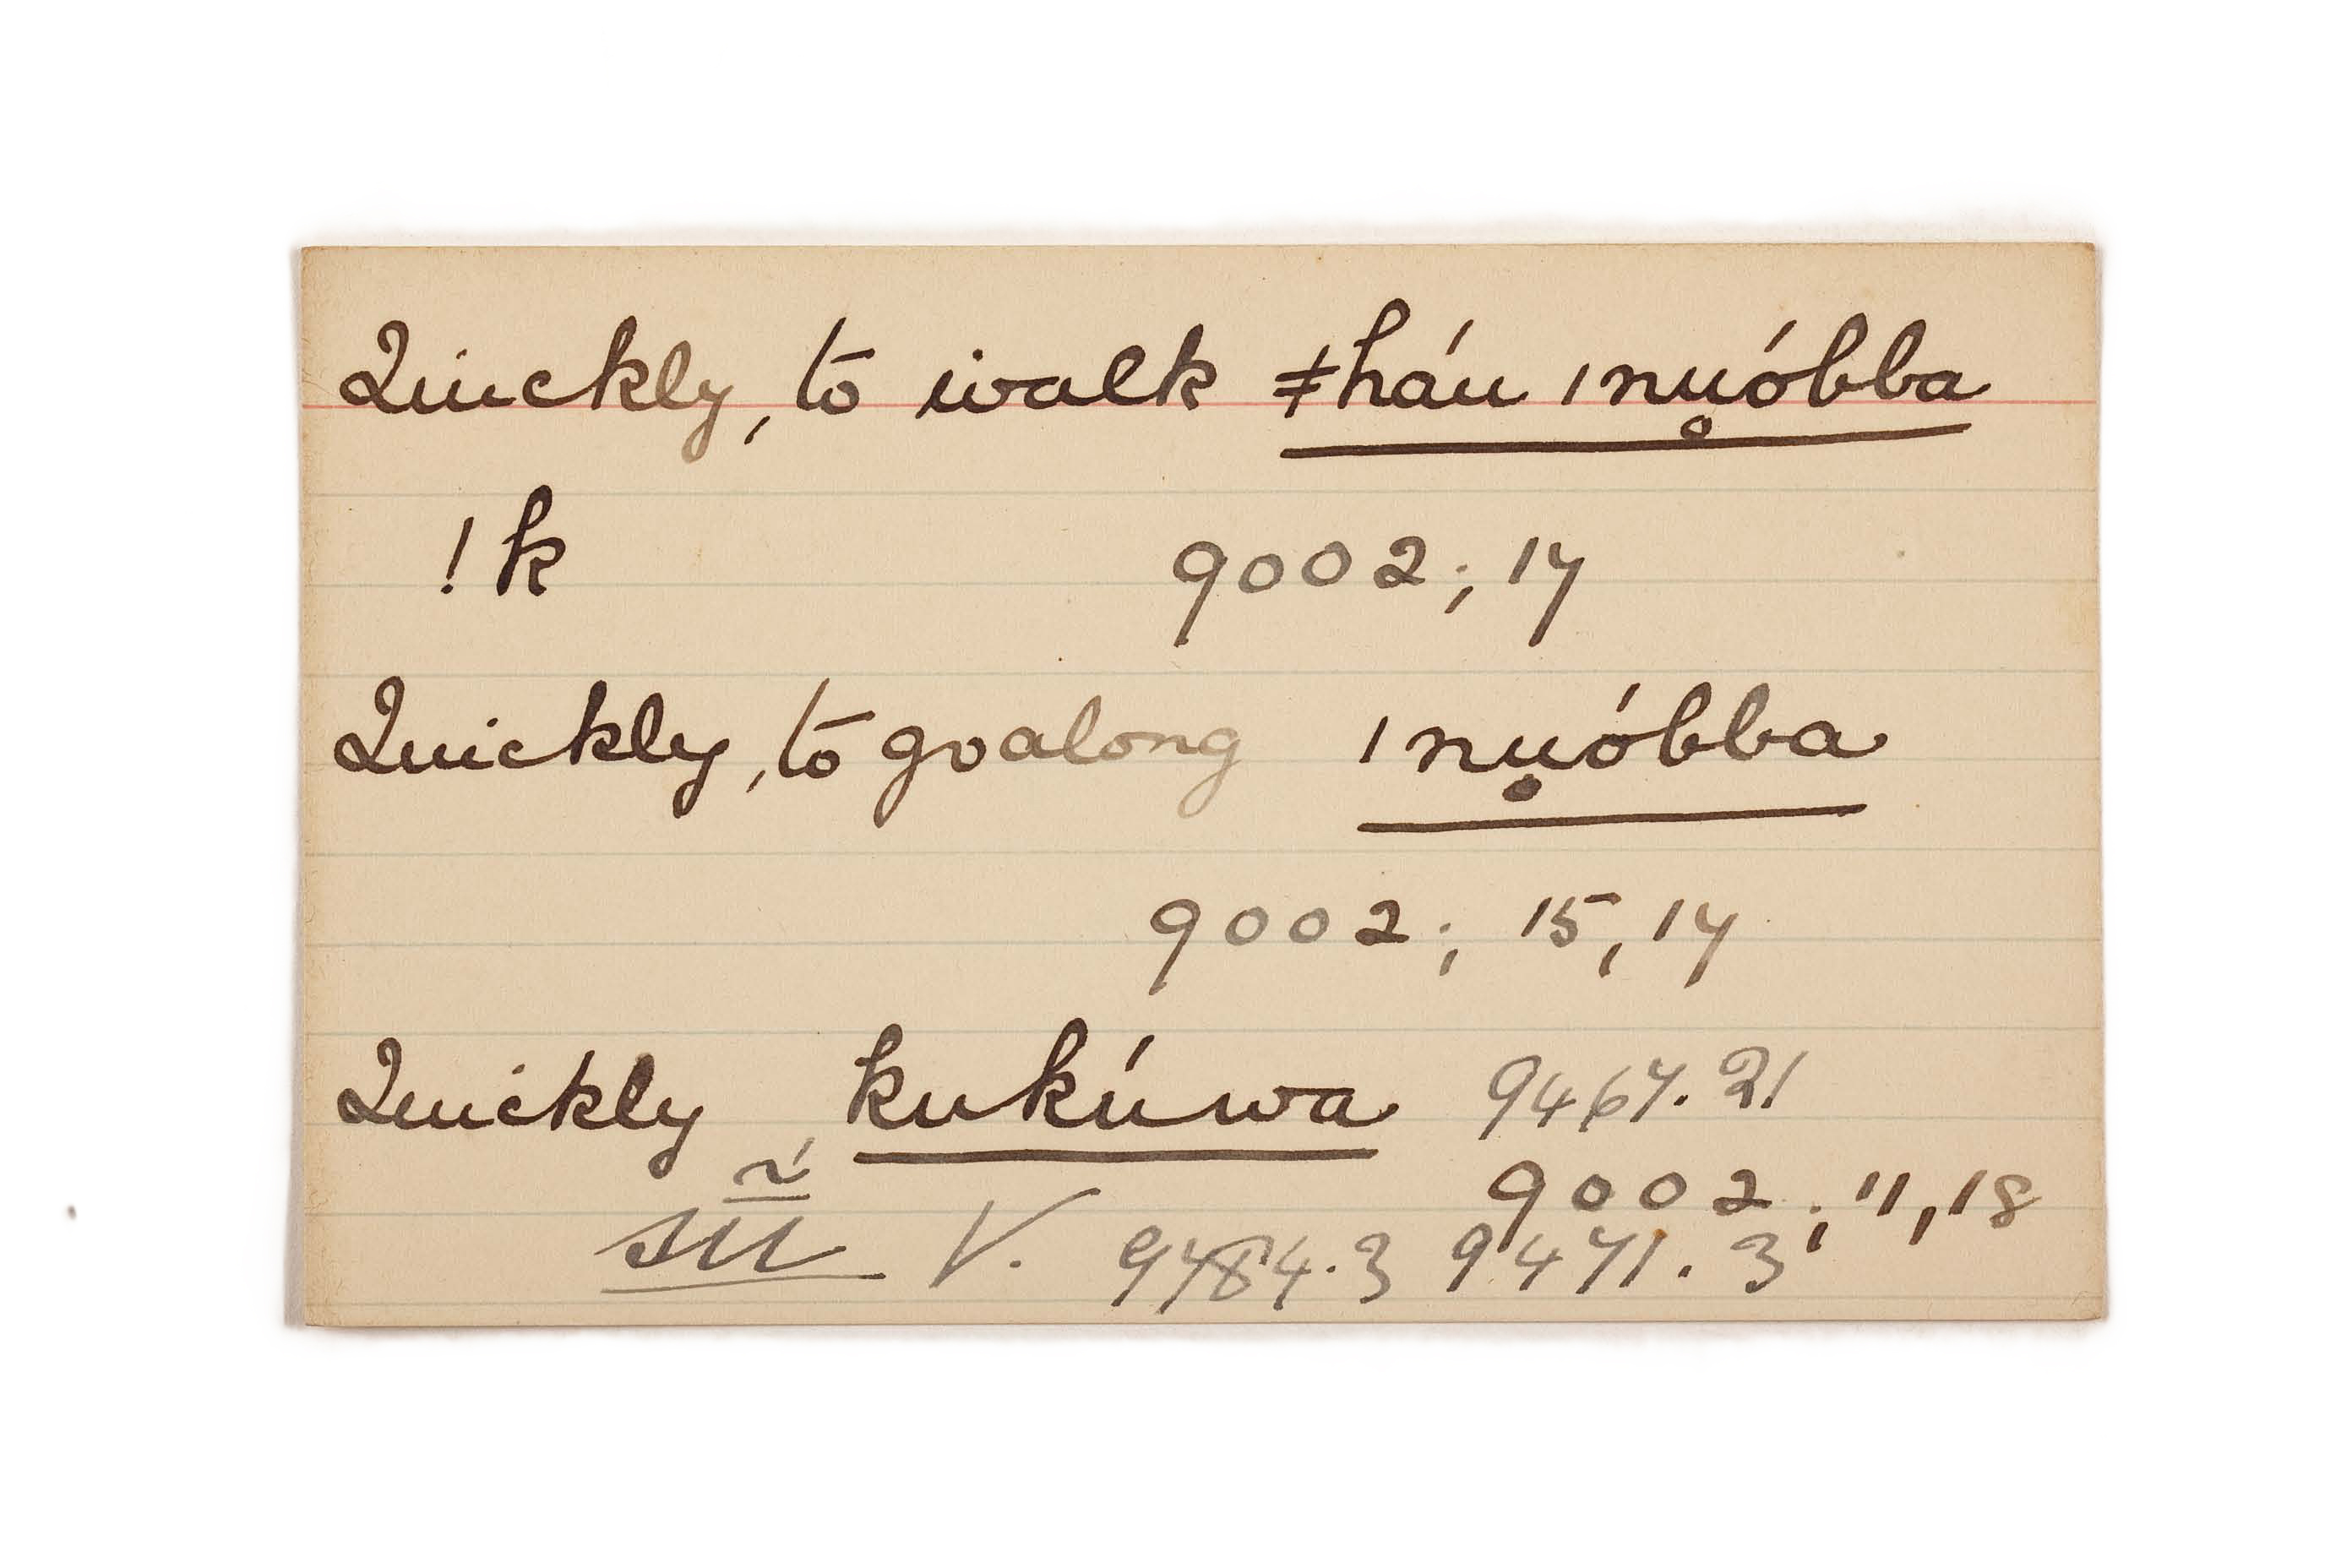 Quickly, to walk ǂháu ǀnu̥óbba
!k 9002; 17
Quickly, to go along ǀnu̥óbba
9002; 15, 17
Quickly, kukúwa 9467. 21
9002; 11, 18
V. 9484.3 9471. 3